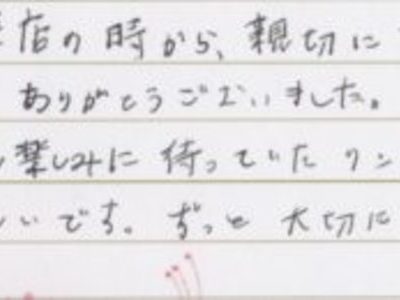 店の時から、親切に
ありがとうございました。
楽しみに待っていたワン
いです。ずっと大切に